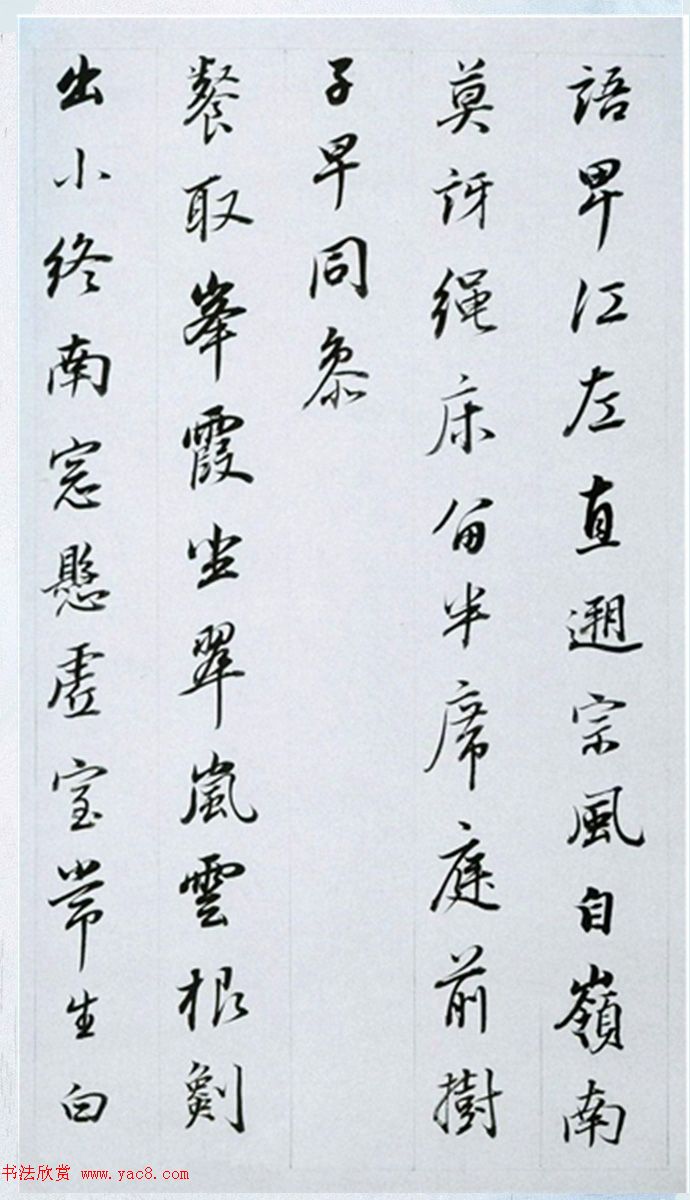 語卑江左直遡宗風自嶺南
莫訝绳床留半席庭前樹
子早同叅
餐取峯霞坐翠嵐雲根劖
出小终南窓懸虚室常生白
书法欣赏 www.yac8.com